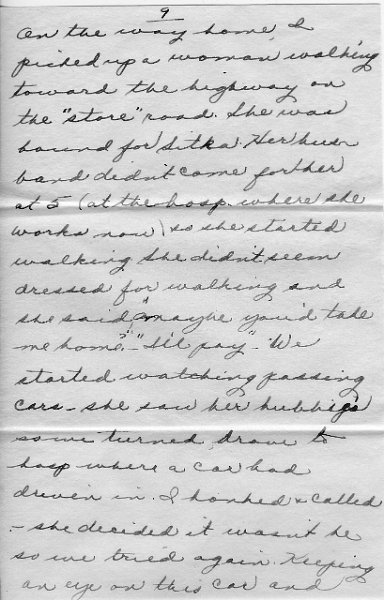 9
On the way home, I
picked up a woman walking
toward the highway on
the "store" road. She was
bound for Sitka. Her hus-
band didn't come for her
at 5 (at the hosp. where she
works now) so she started
walking. She didn't seem
dressed for walking and
she said, "maybe you'd take
me home?" - "I'll pay" - We
started watching passing
cars - she saw her hubbie's
so we turned, drove to
hosp where a car had
driven in. I honked & called
- she decided it wasn't he
so we tried again. Keeping
an eye on this car and